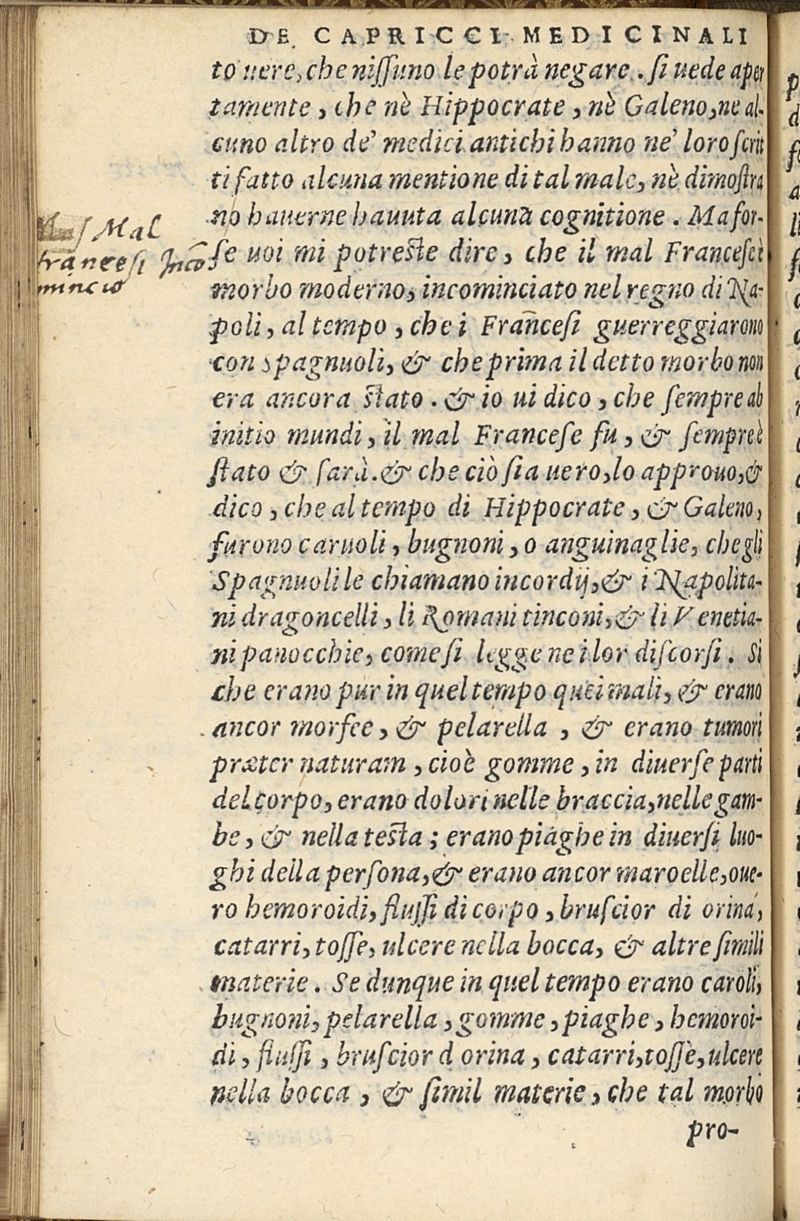 DE CAPRICCI MEDICINALI
to uere, che niſſuno le potrà negare. ſi uede aper
tamente, che nè Hippocrate, nè Galeno, ne al-
cuno altro de' medici antichi hanno ne' loro ſcrit
ti fatto alcuna mentione di tal male, nè dimoſtra
no hauerne hauuta alcuna cognitione. Ma for-
ſe uoi mi potreſte dire, che il mal Franceſe è
morbo moderno, incominciato nel regno di Na-
poli, al tempo, che i Frāceſi guerreggiarono
con Spagnuoli, & che prima il detto morbo non
era ancora ſtato. & io ui dico, che ſempre ab
initio mundi, il mal Franceſe fu, & ſempre è
ſtato & ſarà. & che ciò ſia uero, lo approuo, &
dico, che al tempo di Hippocrate, & Galeno,
furono caruoli, bugnoni, o anguinaglie, che gli
Spagnuoli le chiamano incordij, & i Napolita-
ni dragoncelli, li Romani tinconi, & li Venetia-
ni panocchie, come ſi legge ne i lor diſcorſi. Si
che erano pur in quel tempo quei mali, & erano
ancor morfee, & pelarella, & erano tumori
præter naturam, cioè gomme, in diuerſe parti
del corpo, erano dolori nelle braccia, nelle gam-
be, & nella teſta; erano piaghe in diuerſi luo-
ghi della perſona, & erano ancor maroelle, oue-
ro hemoroidi, fluſſi di corpo, bruſcior di orina,
catarri, toſſe, ulcere nella bocca, & altre ſimili
materie. Se dunque in quel tempo erano caroli,
bugnoni, pelarella, gomme, piaghe, hemoroi-
di, fluſſi, bruſcior d orina, catarri, toſſe, ulcere
nella bocca, & ſimil materie, che tal morbo
pro-
Mal
franceſi Inco
minciò